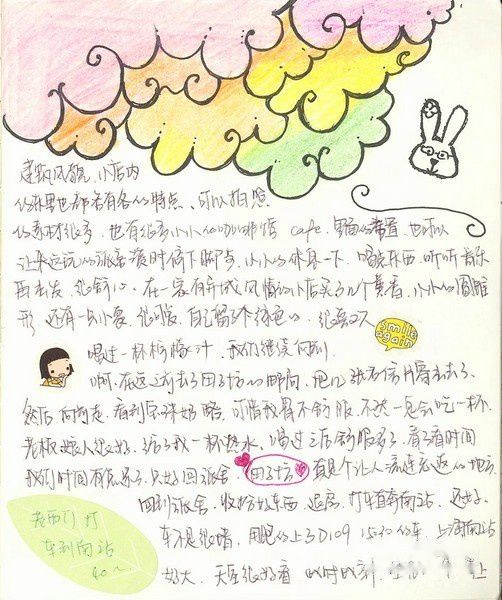 建筑风貌，小店内
的东西也都各有各的特点、可以拍照
的素材很多，也有很多小小的咖啡店 cafe，里面的布置 也可以
让来这玩的旅客 暂时停下脚步，小小的休息一下，喝点东西，听听音乐
再出发，很舒心。在一家有异域风情的小店买了几个熏香，小小的圆锥
形 还有一只小象，很可爱，自己留了个绿色的
smile again
喝过一杯柠檬汁，我们继续向前
啊，在这之前去了田子坊的邮局，把几张名信片寄出去了，
然后向前走，看到 可惜我胃不舒服，不然一定会吃一杯，
老板娘人很好，给了我一杯热水，喝过之后舒服多了，看了看时间
我们时间有点紧了，只好回旅舍，田子坊 真是个让人流连忘返的地方
回到旅舍，收拾好东西，退房，打车直奔南站，还好，
车不是很堵，用思的上了D109 15:20的车，上海南站
好大，天层很好看
老西门 打
车到南站
40~